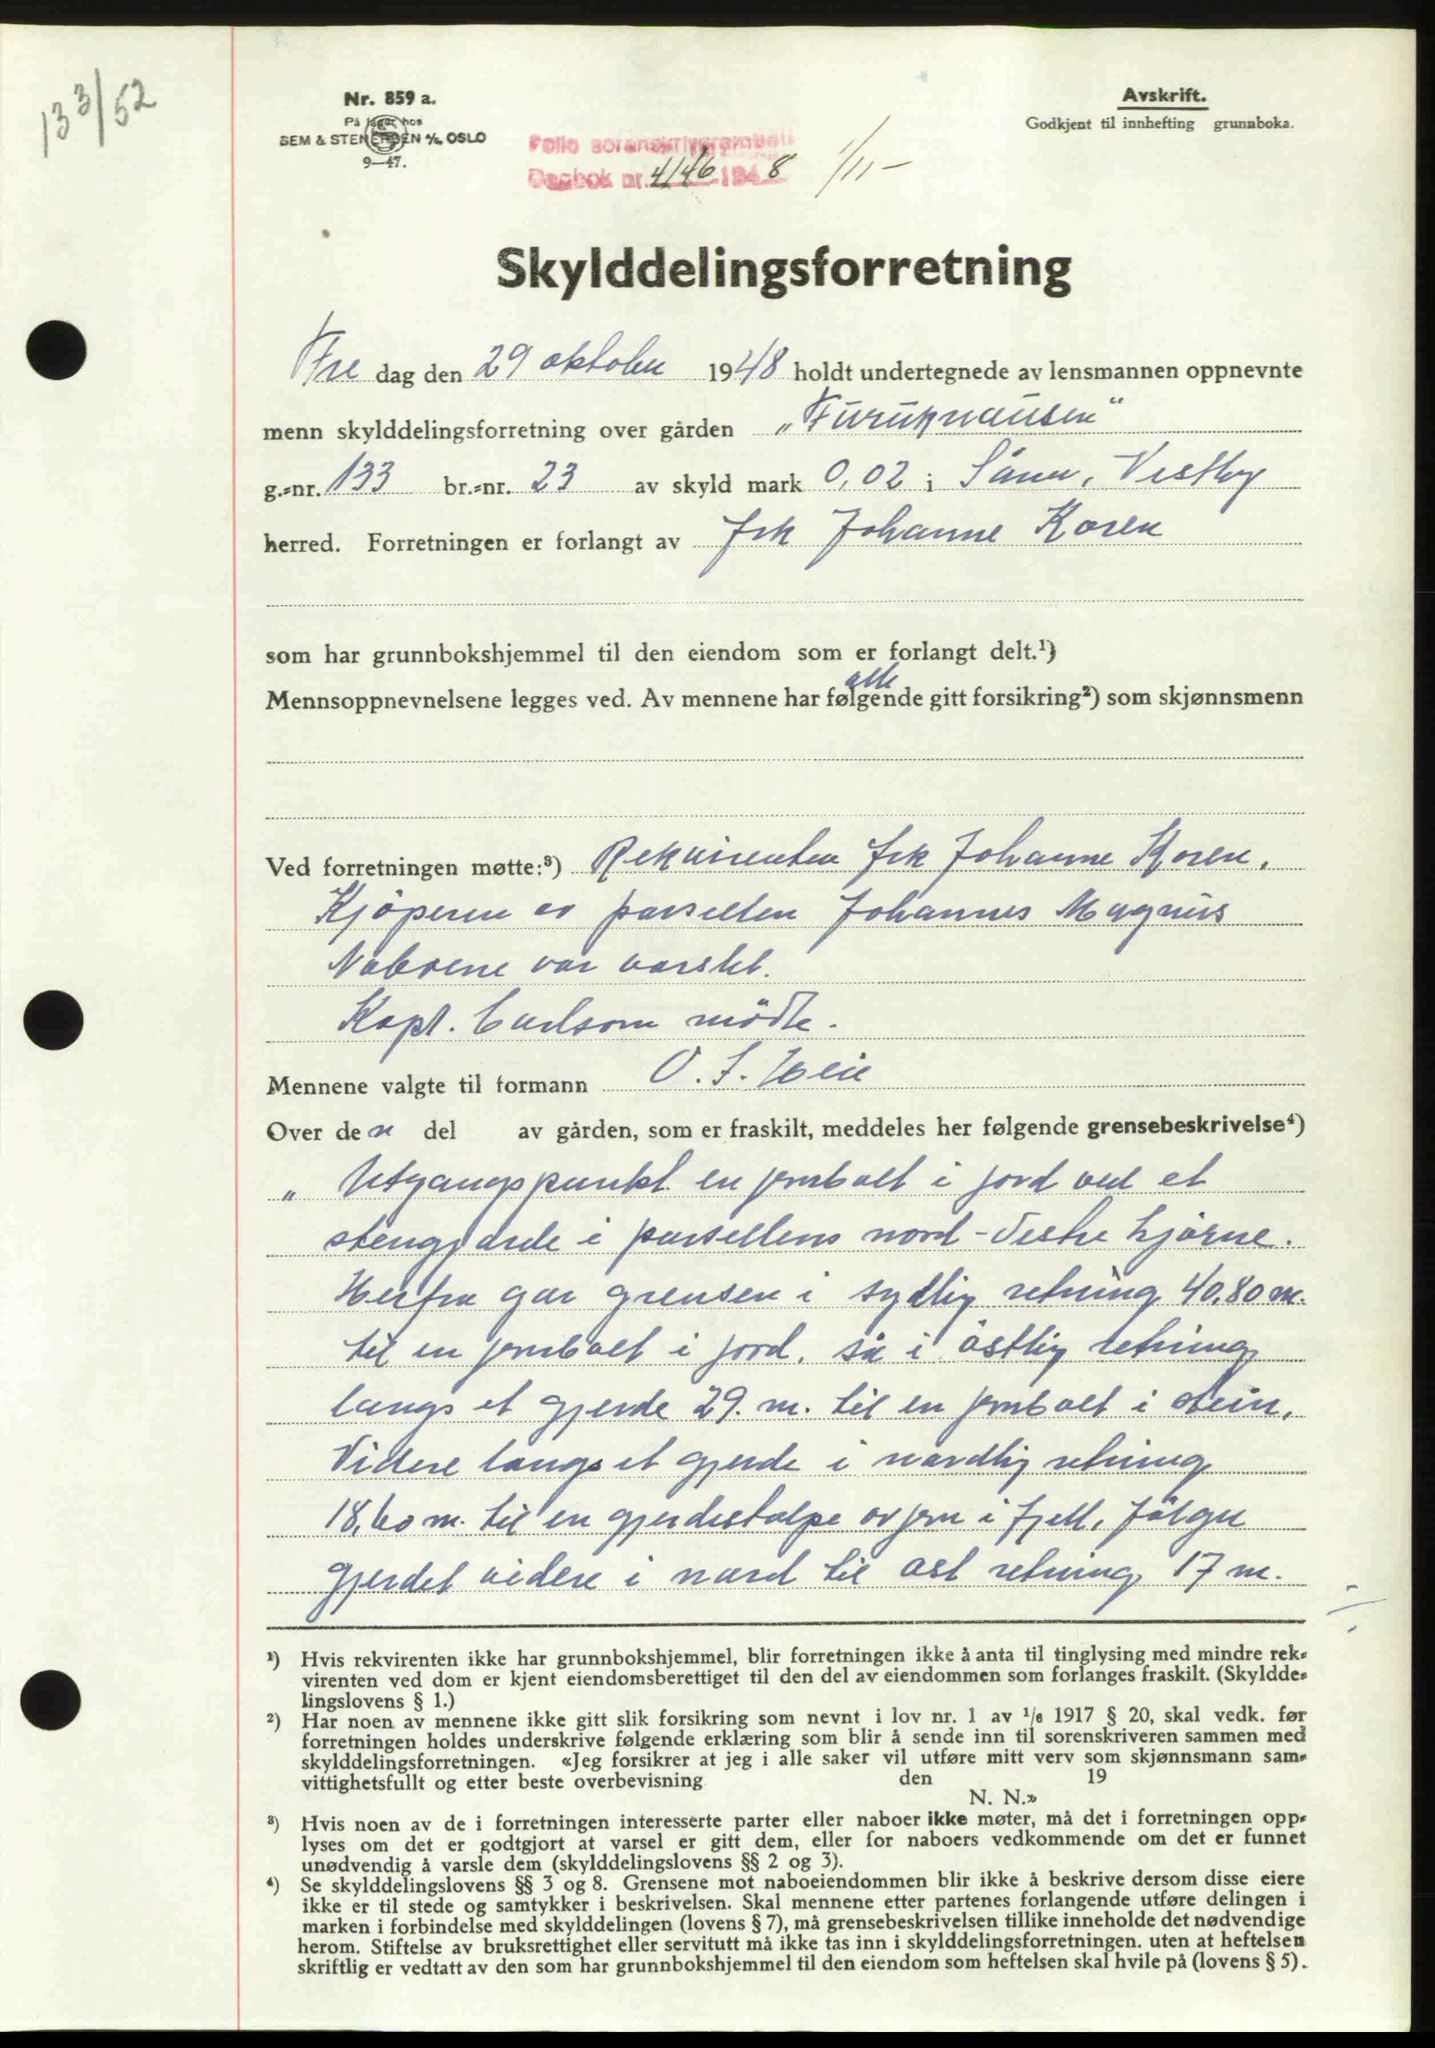 133/52
Nr. 859 a.
På lager hos
SEM & STENERSEN A/S OSLO
9—47.
Avskrift.
Godkjent til innhefting grunnboka.
Follo sorenskriverembete
Dagbok nr. 4146 1948 1/11-
Skylddelingsforretning
Fre dag den 29 oktober 1948 holdt undertegnede av lensmannen oppnevnte
menn skylddelingsforretning over gården „Furuknausen"
g.-nr. 133 br.-nr. 23 av skyld mark 0,02 i Såner, Vestby
herred. Forretningen er forlangt av frk Johanne Koren
som har grunnbokshjemmel til den eiendom som er forlangt delt.¹)
alle
Mennsoppnevnelsene legges ved. Av mennene har følgende gitt forsikring²) som skjønnsmenn
Ved forretningen møtte:³) Rekvirenten frk Johanne Koren,
Kjöperen av parsellen Johannes Magnus
Naboene var varslet.
Kapt. Carlsom mödte.
Mennene valgte til formann O. J. Heie
Over den del av gården, som er fraskilt, meddeles her følgende grensebeskrivelse⁴)
„ Utgangspunkt en jernbolt i jord ved et
stengjærde i parsellens nord-vestre hjörne.
Herfra går grensen i sydlig retning 40,80 m.
til en jernbolt i jord. så i östlig retning
langs et gjerde 29. m. til en jernbolt i stein,
Videre langs et gjerde i nordlig retning
18,60 m. til en gjerdestolpe av jern i fjell, fölger
gjerdet videre i nord til ost retning 17 m.
¹) Hvis rekvirenten ikke har grunnbokshjemmel, blir forretningen ikke å anta til tinglysing med mindre rek-
virenten ved dom er kjent eiendomsberettiget til den del av eiendommen som forlanges fraskilt. (Skyldde-
lingslovens § 1.)
²) Har noen av mennene ikke gitt slik forsikring som nevnt i lov nr. 1 av 1/6 1917 § 20, skal vedk. før
forretningen holdes underskrive følgende erklæring som blir å sende inn til sorenskriveren sammen med
skylddelingsforretningen. «Jeg forsikrer at jeg i alle saker vil utføre mitt verv som skjønnsmann sam-
vittighetsfullt og etter beste overbevisning den 19
N. N.»
³) Hvis noen av de i forretningen interesserte parter eller naboer ikke møter, må det i forretningen opp-
lyses om det er godtgjort at varsel er gitt dem, eller for naboers vedkommende om det er funnet
unødvendig å varsle dem (skylddelingslovens §§ 2 og 3).
⁴) Se skylddelingslovens §§ 3 og 8. Grensene mot naboeiendommen blir ikke å beskrive dersom disse eiere
ikke er til stede og samtykker i beskrivelsen. Skal mennene etter partenes forlangende utføre delingen i
marken i forbindelse med skylddelingen (lovens § 7), må grensebeskrivelsen tillike inneholde det nødvendige
herom. Stiftelse av bruksrettighet eller servitutt må ikke tas inn i skylddelingsforretningen. uten at heftelsen
skriftlig er vedtatt av den som har grunnbokshjemmel til den eiendom som heftelsen skal hvile på (lovens § 5).